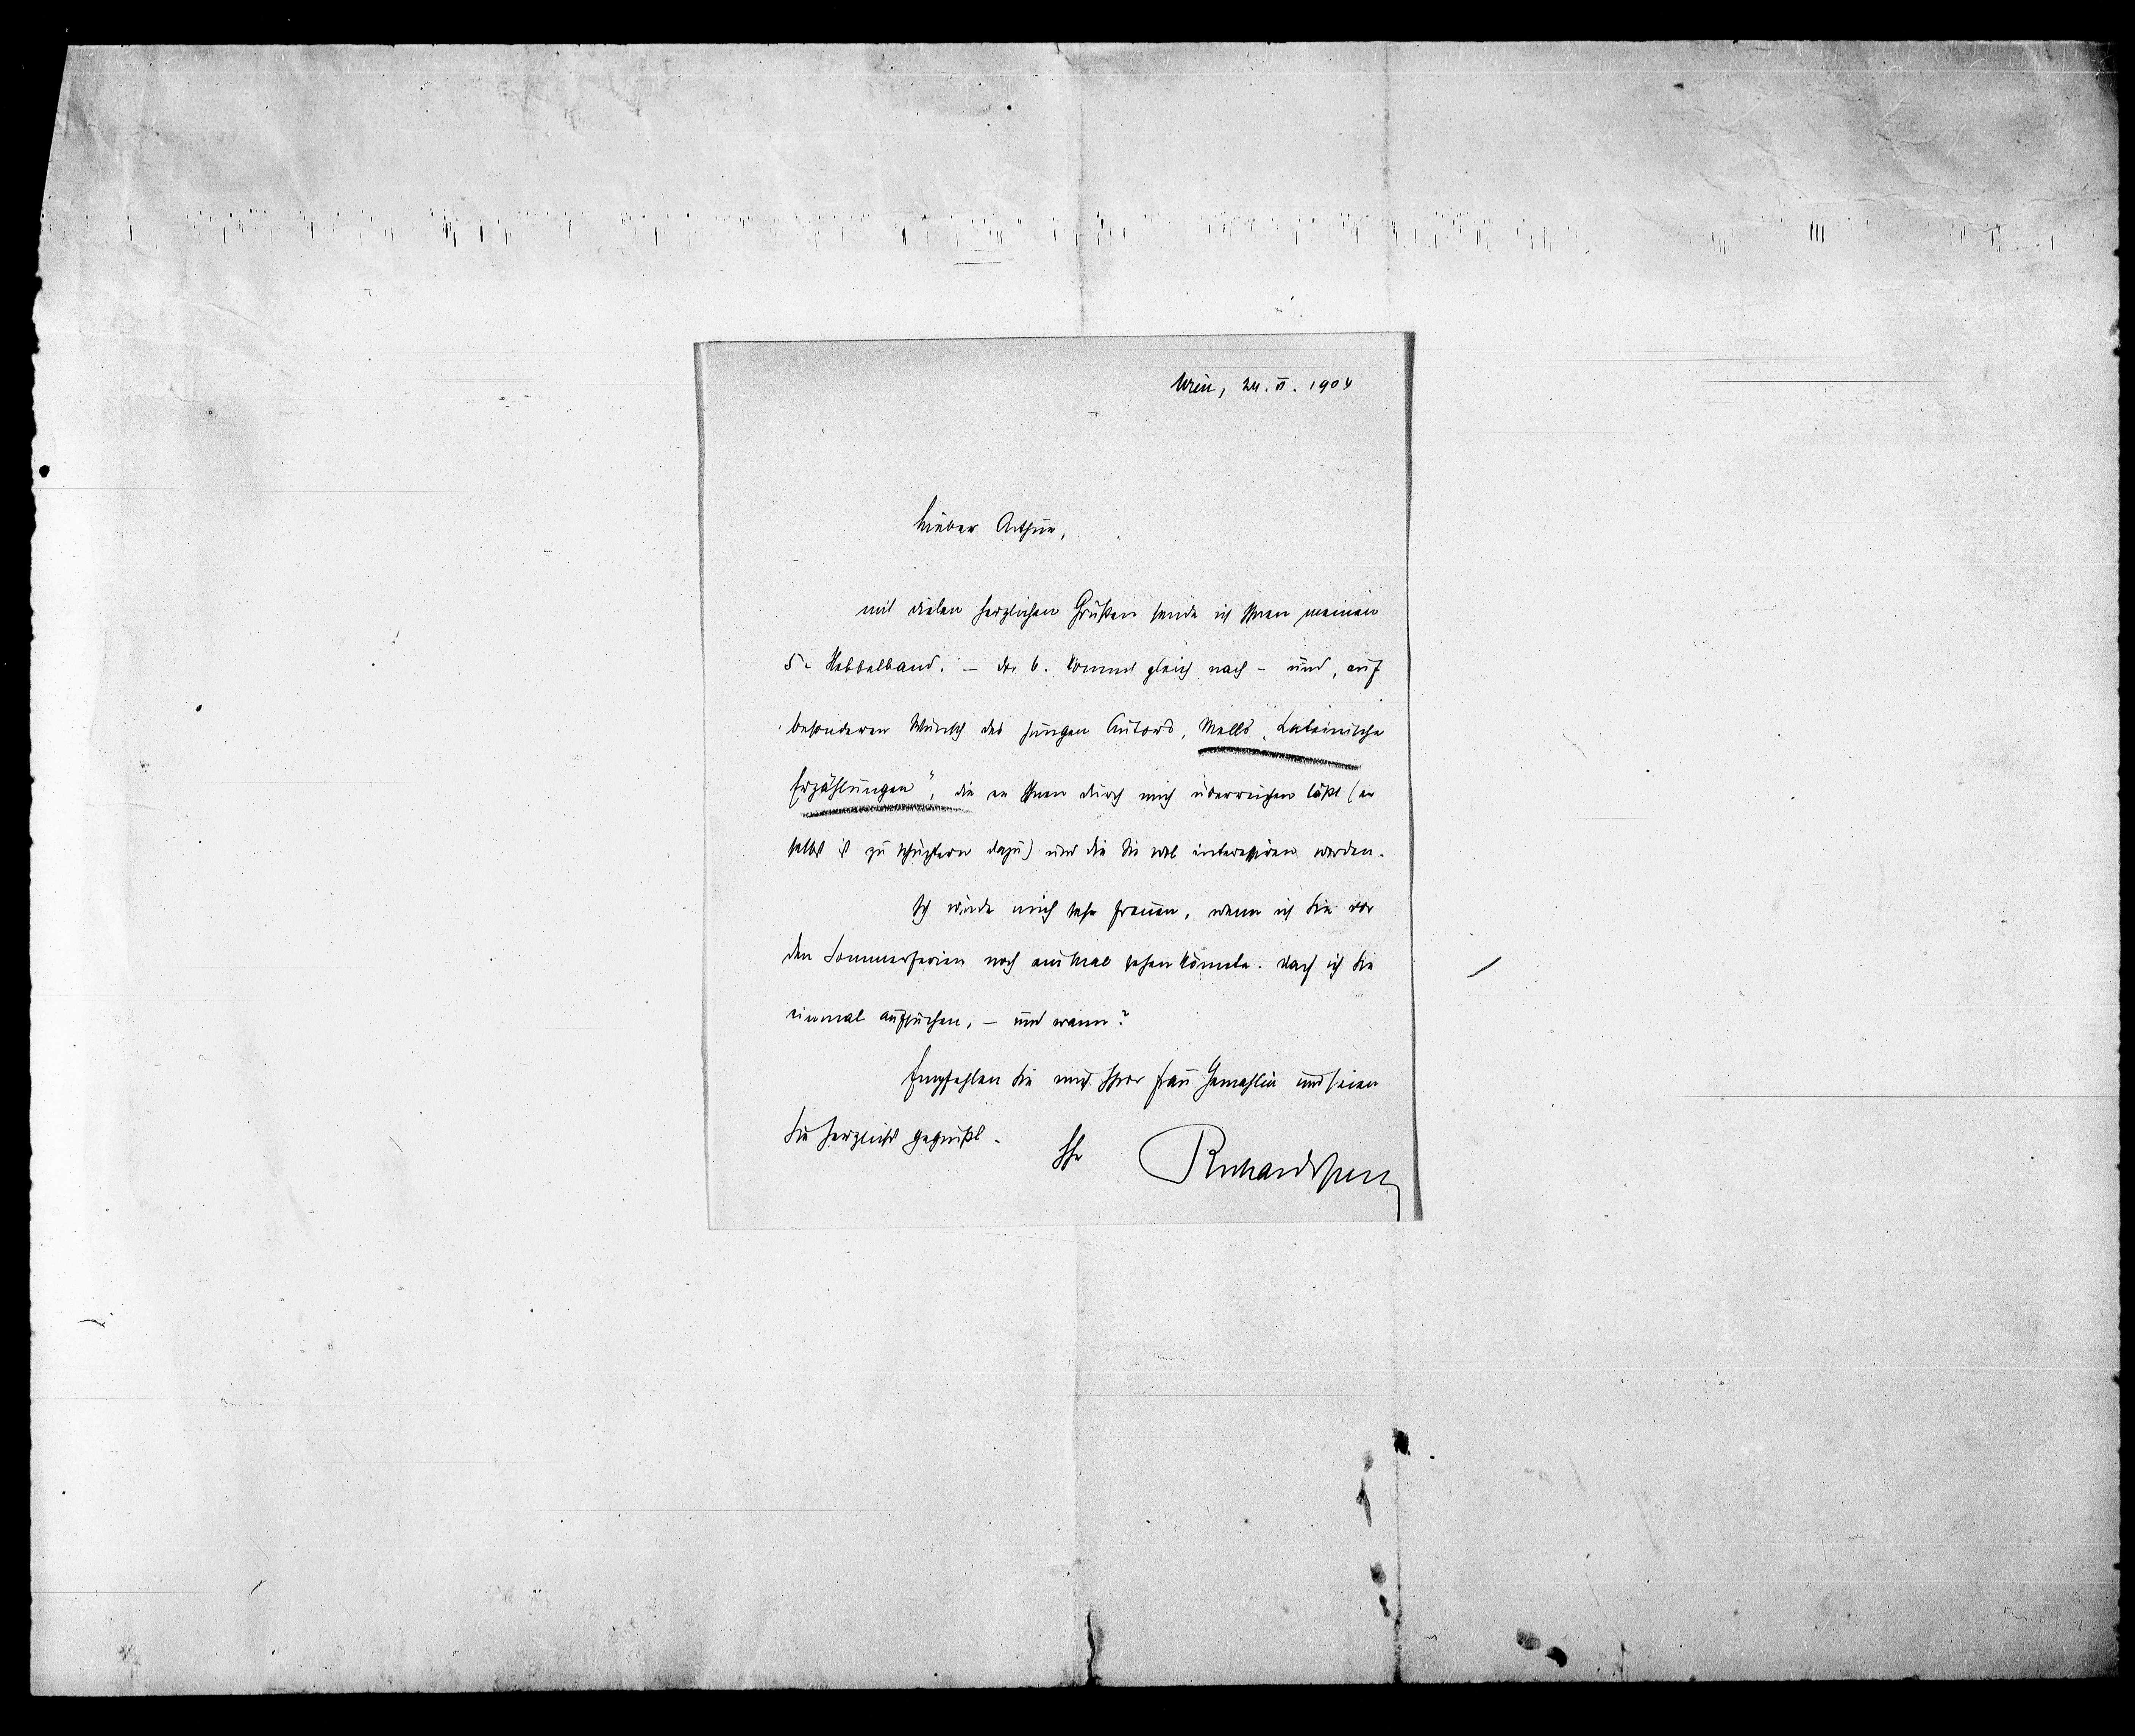 Wien, 24. VI. 1904
Lieber Arthur,
mit vielen herzlichen Grüßen sende ich Ihnen meinen
5. Hebbelband. – der 6. kommt gleich nach – und, auf
besonderen Wunsch des jungen Autors, Mells „Lateinische
Erzählungen", die er Ihnen durch mich überreichen läßt (er
selbst ist zu schüchtern dazu) und die Sie wol interessiren werden.
Ich würde mich sehr freuen, wenn ich Sie vor
den Sommerferien noch einmal sehen könnte. Darf ich Sie
einmal aufsuchen, – und wann?
Empfehlen Sie mich Ihrer Frau Gemahlin und seien
Sie herzlichst gegrüßt.
Ihr RichardSpecht